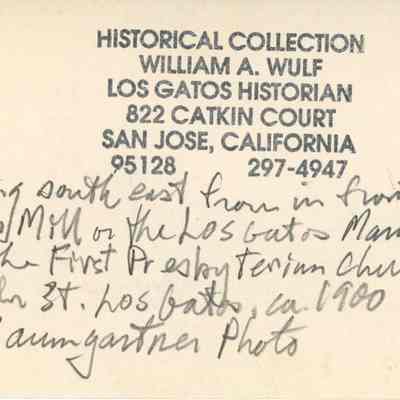 HISTORICAL COLLECTION
WILLIAM A. WULF
LOS GATOS HISTORIAN
822 CATKIN COURT
SAN JOSE, CALIFORNIA
95128 297-4947
south east from in
Mill or the Los Gatos
First Presbyterian
St. Los Gatos, ca. 1900
aumgartner Photo